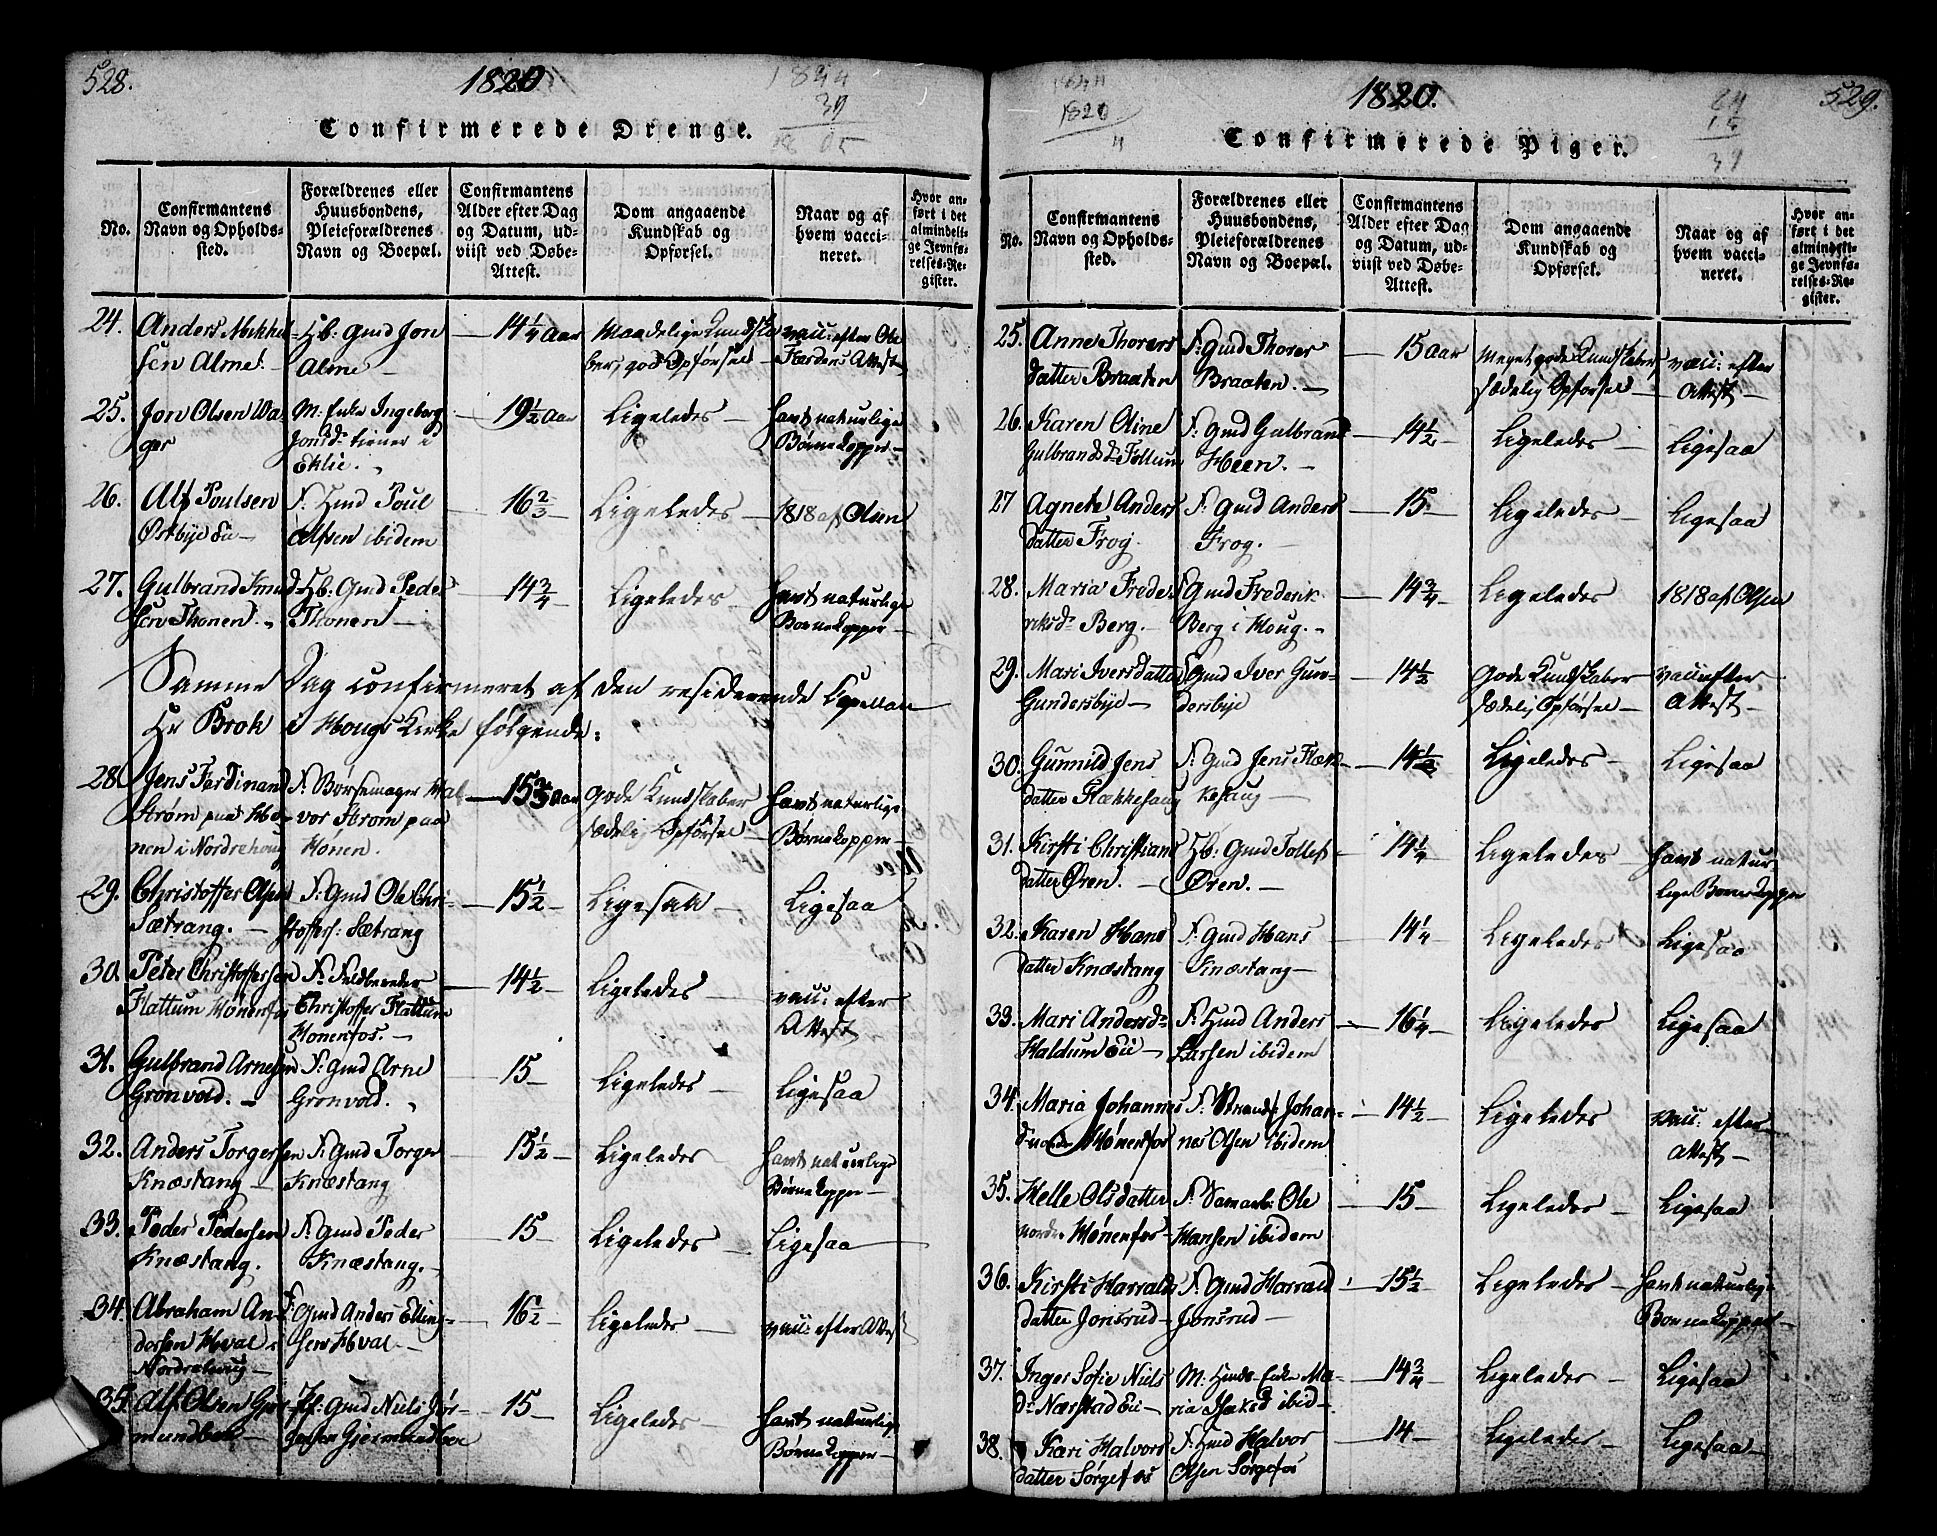 528.
1820
1844
39
1805
Confirmerede Drenge.
No.
Confirmantens Navn og Opholdssted.
Forældrenes eller Huusbondens, Pleieforældrenes Navn og Boepæl.
Confirmantens Alder efter Dag og Datum, udviist ved Døbe-Attest.
Dom angaaende Kundskab og Opførsel.
Naar og af hvem vaccineret.
Hvor anført i det almindelige Jevnførelses-Register.
24. Anders Mikkelsen Alme. Hb: Gmd Jon Alme — 14 1/4 Aar Maadelige Kundskaber, god Opførsel — vacc: efter Ole Færdens Attest
25. Jon Olsen Wager M: Enke Ingeborg Jonsd: tiener i Eklie. 19 1/2 Aar Ligeledes — havt naturlige Børnekopper —
26. Alf Poulsen Østbye Eie — F: Hmd Poul Alfsen ibidem 16 2/3 — Ligeledes — 1818 af Olsen
27. Gulbrand Knudsen Thonen. Hb: Gmd Peder Thonen — 14 3/4 — Ligeledes — havt naturlige Børnekopper —
Samme Dag confirmeret af den residerende Capellan
Hr Brok i Hougs Kirke følgende:
28. Jens Ferdinand Strøm paa Hønen i Nordrehoug F: Børsemager Halvor Strøm paa Hønen. 15 3/4 Aar gode Kundskaber sædelig Opførsel — havt naturlige Børnekopper —
29. Christoffer Olsen Sætrang. — F: Gmd Ole Christoffers: Sætrang 15 1/2 — Ligesaa — Ligesaa
30. Peter Christoffersen Flattum Hønenfos F: Feldbereder Christoffer Flattum Hønenfos. — 14 1/2 — Ligeledes — vacc: efter Attest
31. Gulbrand Arnesen Grønvold. — F: Gmd Arne Grønvold. 15 — Ligeledes — Ligesaa
32. Anders Torgersen Knæstang — F: Gmd Torger Knæstang 15 1/2 — Ligeledes — havt naturlige Børnekopper —
33. Peder Pedersen Knæstang. F: Gmd Peder Knæstang. — 15 — Ligeledes — Ligesaa —
34. Abraham Andersen Hval i Nordrehoug — F: Gmd Anders Ellingsen Hval — 16 1/2 — Ligeledes — vacc: efter Attest
35. Alf Olsen Gjermundboe — Pf: Gmd Niels Jørgensen Gjermundboe 15 — Ligeledes — havt naturlige Børnekopper —
529.
1820.
1844
1820
4
Confirmerede Piger.
No.
Confirmantens Navn og Opholdssted.
Forældrenes eller Huusbondens, Pleieforældrenes Navn og Boepæl.
Confirmantens Alder efter Dag og Datum, udviist ved Døbe-Attest.
Dom angaaende Kundskab og Opførsel.
Naar og af hvem vaccineret.
Hvor anført i det almindelige Jevnførelses-Register.
25. Anne Thorersdatter Braaten F: Gmd Thorer Braaten. — 15 Aar Meget gode Kundskaber, sædelig Opførsel — vacc: efter Attest —
26. Karen Oline Gulbrandsd: Follum F: Gmd Gulbrand Heen. — 14 1/2 — Ligeledes — Ligesaa
27 Agnete Andersdatter Frog. F: Gmd Anders Frog. — 15 — Ligeledes — Ligesaa
28. Maria Frederiksd: Berg. — F: Gmd Frederik Berg i Houg. — 14 3/4 — Ligeledes 1818 af Olsen
29. Mari Iversdatter Gundersbye — F: Gmd Iver Gundersbye 14 1/2 — gode Kundskaber sædelig Opførsel — vacc: efter Attest —
30. Gunnild Jensdatter Flækkesaug F: Gmd Jens Flækkesaug — 14 1/2 — Ligeledes — Ligesaa
31. Kirsti Christiansdatter Øren. — Hb: Gmd Tollef Øren. — 14 1/4 — Ligeledes — havt naturlige Børnekopper
32. Karen Hansdatter Knæstang F: Gmd Hans Knæstang — 14 1/4 — Ligeledes Ligesaa
33. Mari Andersd: Haldum Eie — F: Hmd Anders Larsen ibidem 16 1/4 — Ligeledes Ligesaa
34. Maria Johannesd: Hønenfos F: Johannes Olsen ibidem 14 1/2 — Ligeledes vacc: efter Attest —
35. Helle Olsdatter nordre Hønenfos — F: Ole Hansen ibidem 15 — Ligeledes — Ligesaa
36. Kirsti Harraldsdatter Jonsrud — F: Gmd Harrald Jonsrud — 15 1/2 — Ligeledes — havt naturlige Børnekopper —
37. Inger Sofie Nielsd: Nærstad Eie — M: Hmds Enke Maria ibid — 14 3/4 — Ligeledes — Ligesaa
38. Kari Halvorsdatter Sørgefos F: Hmd Halvor Olsen Sørgefos 14 — Ligeledes — Ligesaa —